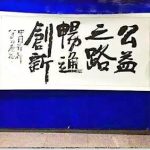 公益
之路
暢通
創新